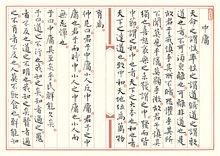 中庸
天命之謂性率性之謂道修道之謂教道也者不可須
臾離也可離非道也是故君子戒慎乎其所不睹恐懼乎其所
不聞莫見乎隱莫顯乎微故君子慎其獨也
喜怒哀樂之未發謂之中發而皆中節謂之和中也者
天下之大本也和也者
天下之達道也致中和天地位焉萬物
育焉
仲尼曰君子中庸小人反中庸君子之中
庸也君子而時中小人之中庸也小人而
無忌憚也
子曰中庸其至矣乎民鮮能久矣
子曰道之不行也我知之矣知者過之愚
者不及也道之不明也我知之矣賢者過之不肖
者不及也人莫不飲食也鮮能知